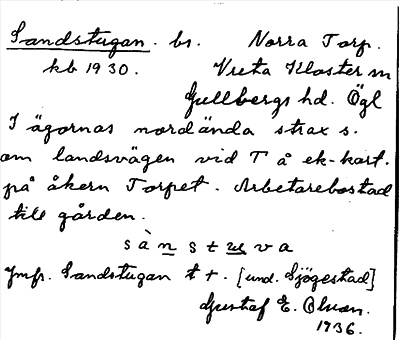 Sandstugan. bs. Norra Torp.
kb 1930. Vreta Kloster sn
Gullbergs hd. Ögl
I ägornas nordända strax s.
om landsvägen vid T å ek-kart.
på åkern Torpet. Arbetarebostad
till gården.
sànstuva
Jmfr. Sandstugan t +. [und. Sjögestad]
Gustaf E. Olsson.
1936.